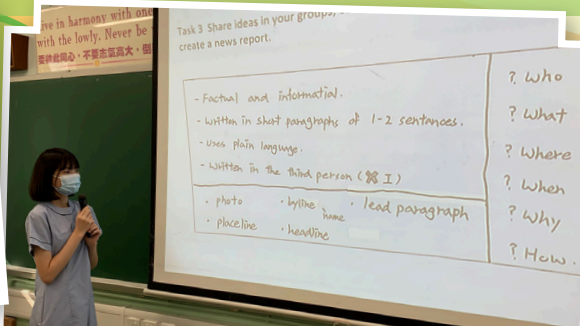 ive in harmony with one
with the lowly. Never be
彼此同心，不要志氣高大，倒
Task 3 Share ideas in your groups,
create a news report.
- Factual and informatial.
- Written in short paragraphs of 1-2 sentences.
- Uses plain language.
- Written in the third person (X I)
• photo • byline • lead paragraph
name
• placeline • headline
? Who
? What
? Where
? When
? Why
? How.